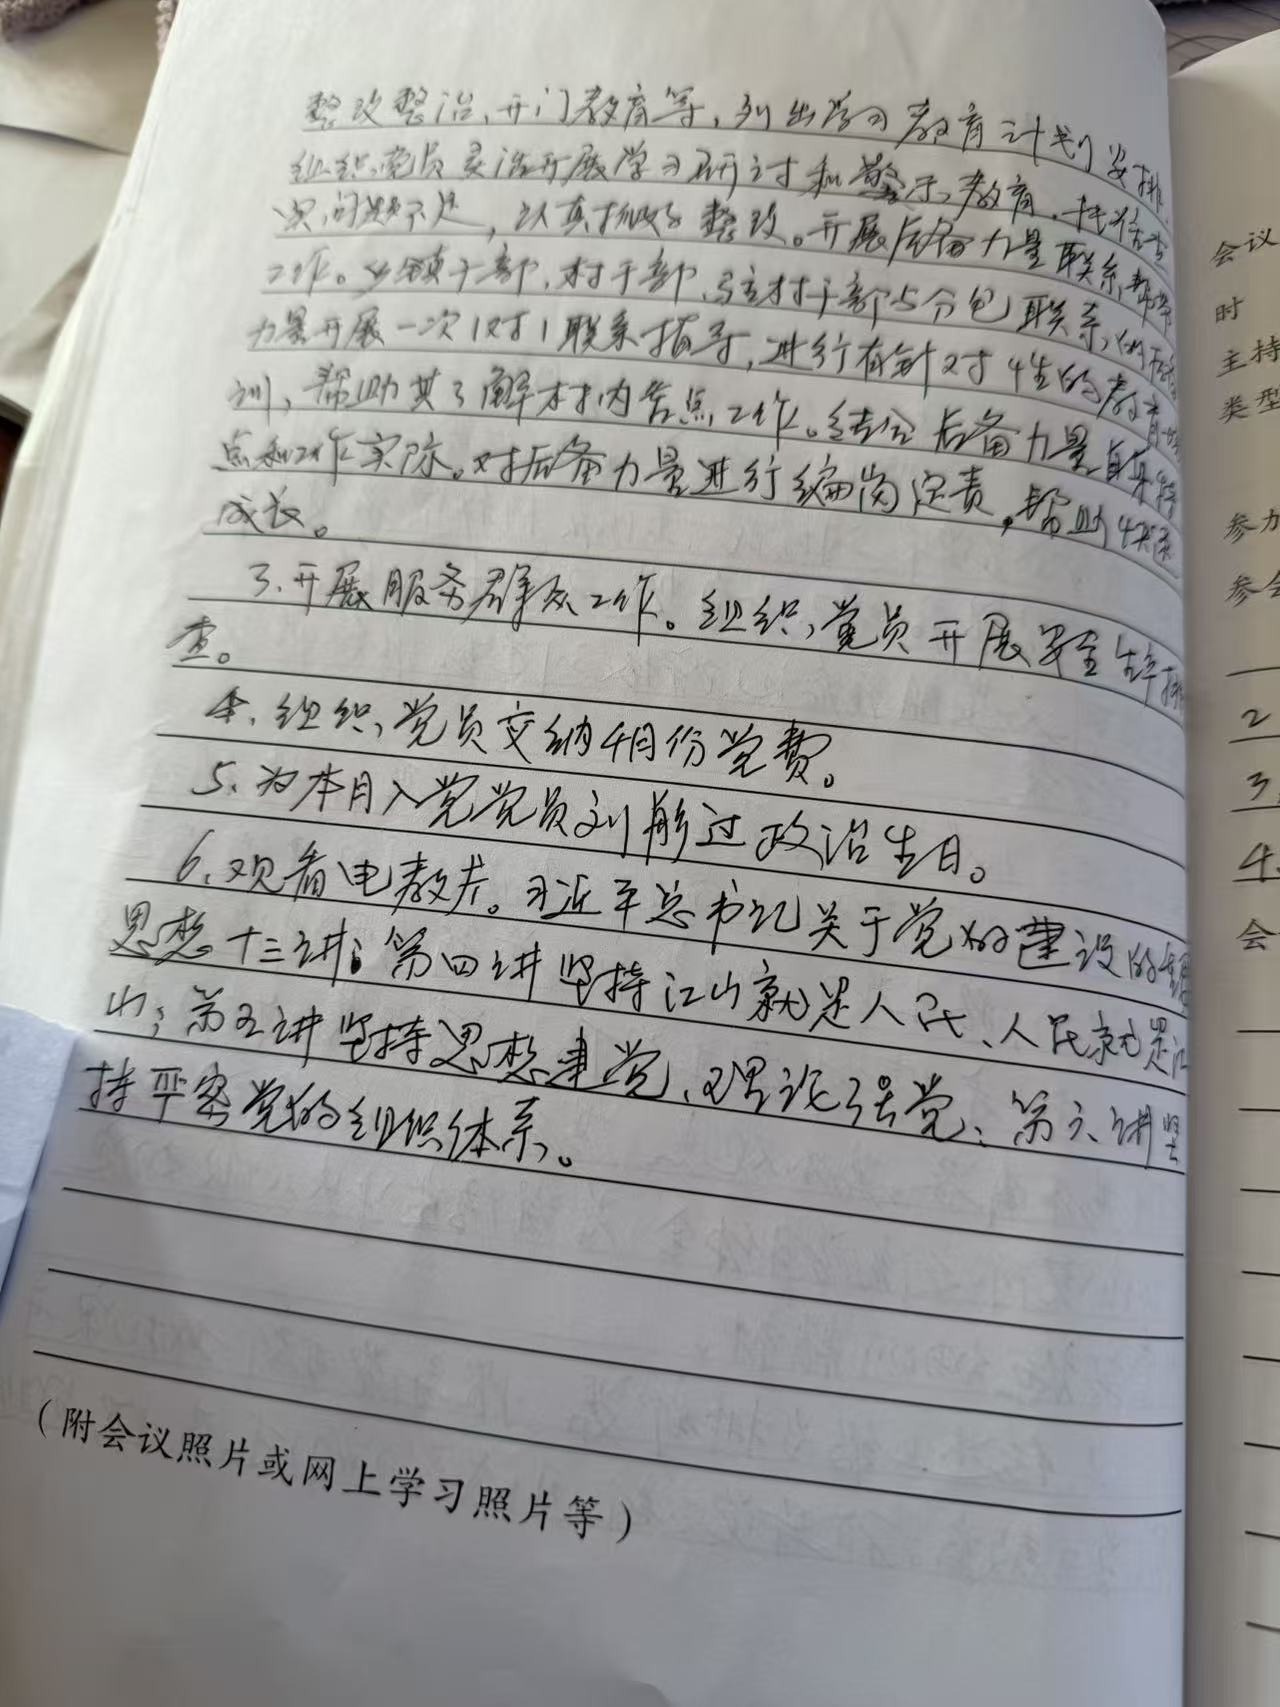 整改整治、开门教育等，列出学习教育计划安排，
组织党员灵活开展学习研讨和警示教育，查
问题不足，认真抓好整改。开展后备力量联系
工作。乡镇干部、村干部、驻村干部分包联系
力量开展一次1对1联系指导，进行有针对性的教育
训，帮助其了解村内各点工作。结合后备力量自身特
点和工作实际。对后备力量进行编岗定责，帮助快速
成长。
3.开展服务群众工作。组织党员开展安全生产排
查。
4、组织党员交纳4月份党费。
5、为本月入党党员刘 过政治生日。
6、观看电教片。习近平总书记关于党的建设的
思想十三讲：第四讲坚持江山就是人民、人民就是江
山；第五讲坚持思想建党、理论强党；第六讲坚
持严密党的组织体系。
（附会议照片或网上学习照片等）
会议
时
主持
类型
参加
参会
2
3
4.
会